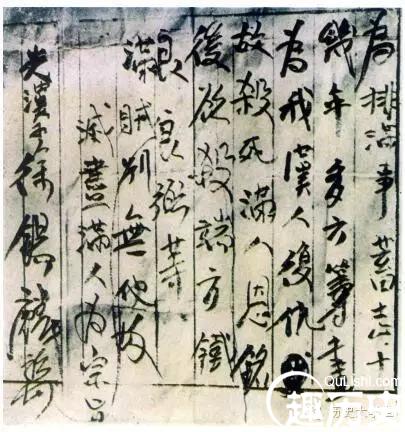 為排滿事蓄志十
幾年多方籌
為我漢人復仇
故殺死滿人恩銘
後欲殺端方鐵
良良弼等
滿賊別無他故
滅盡滿人為宗旨
光漢子徐錫麟
QuLiShi.com
趣历史